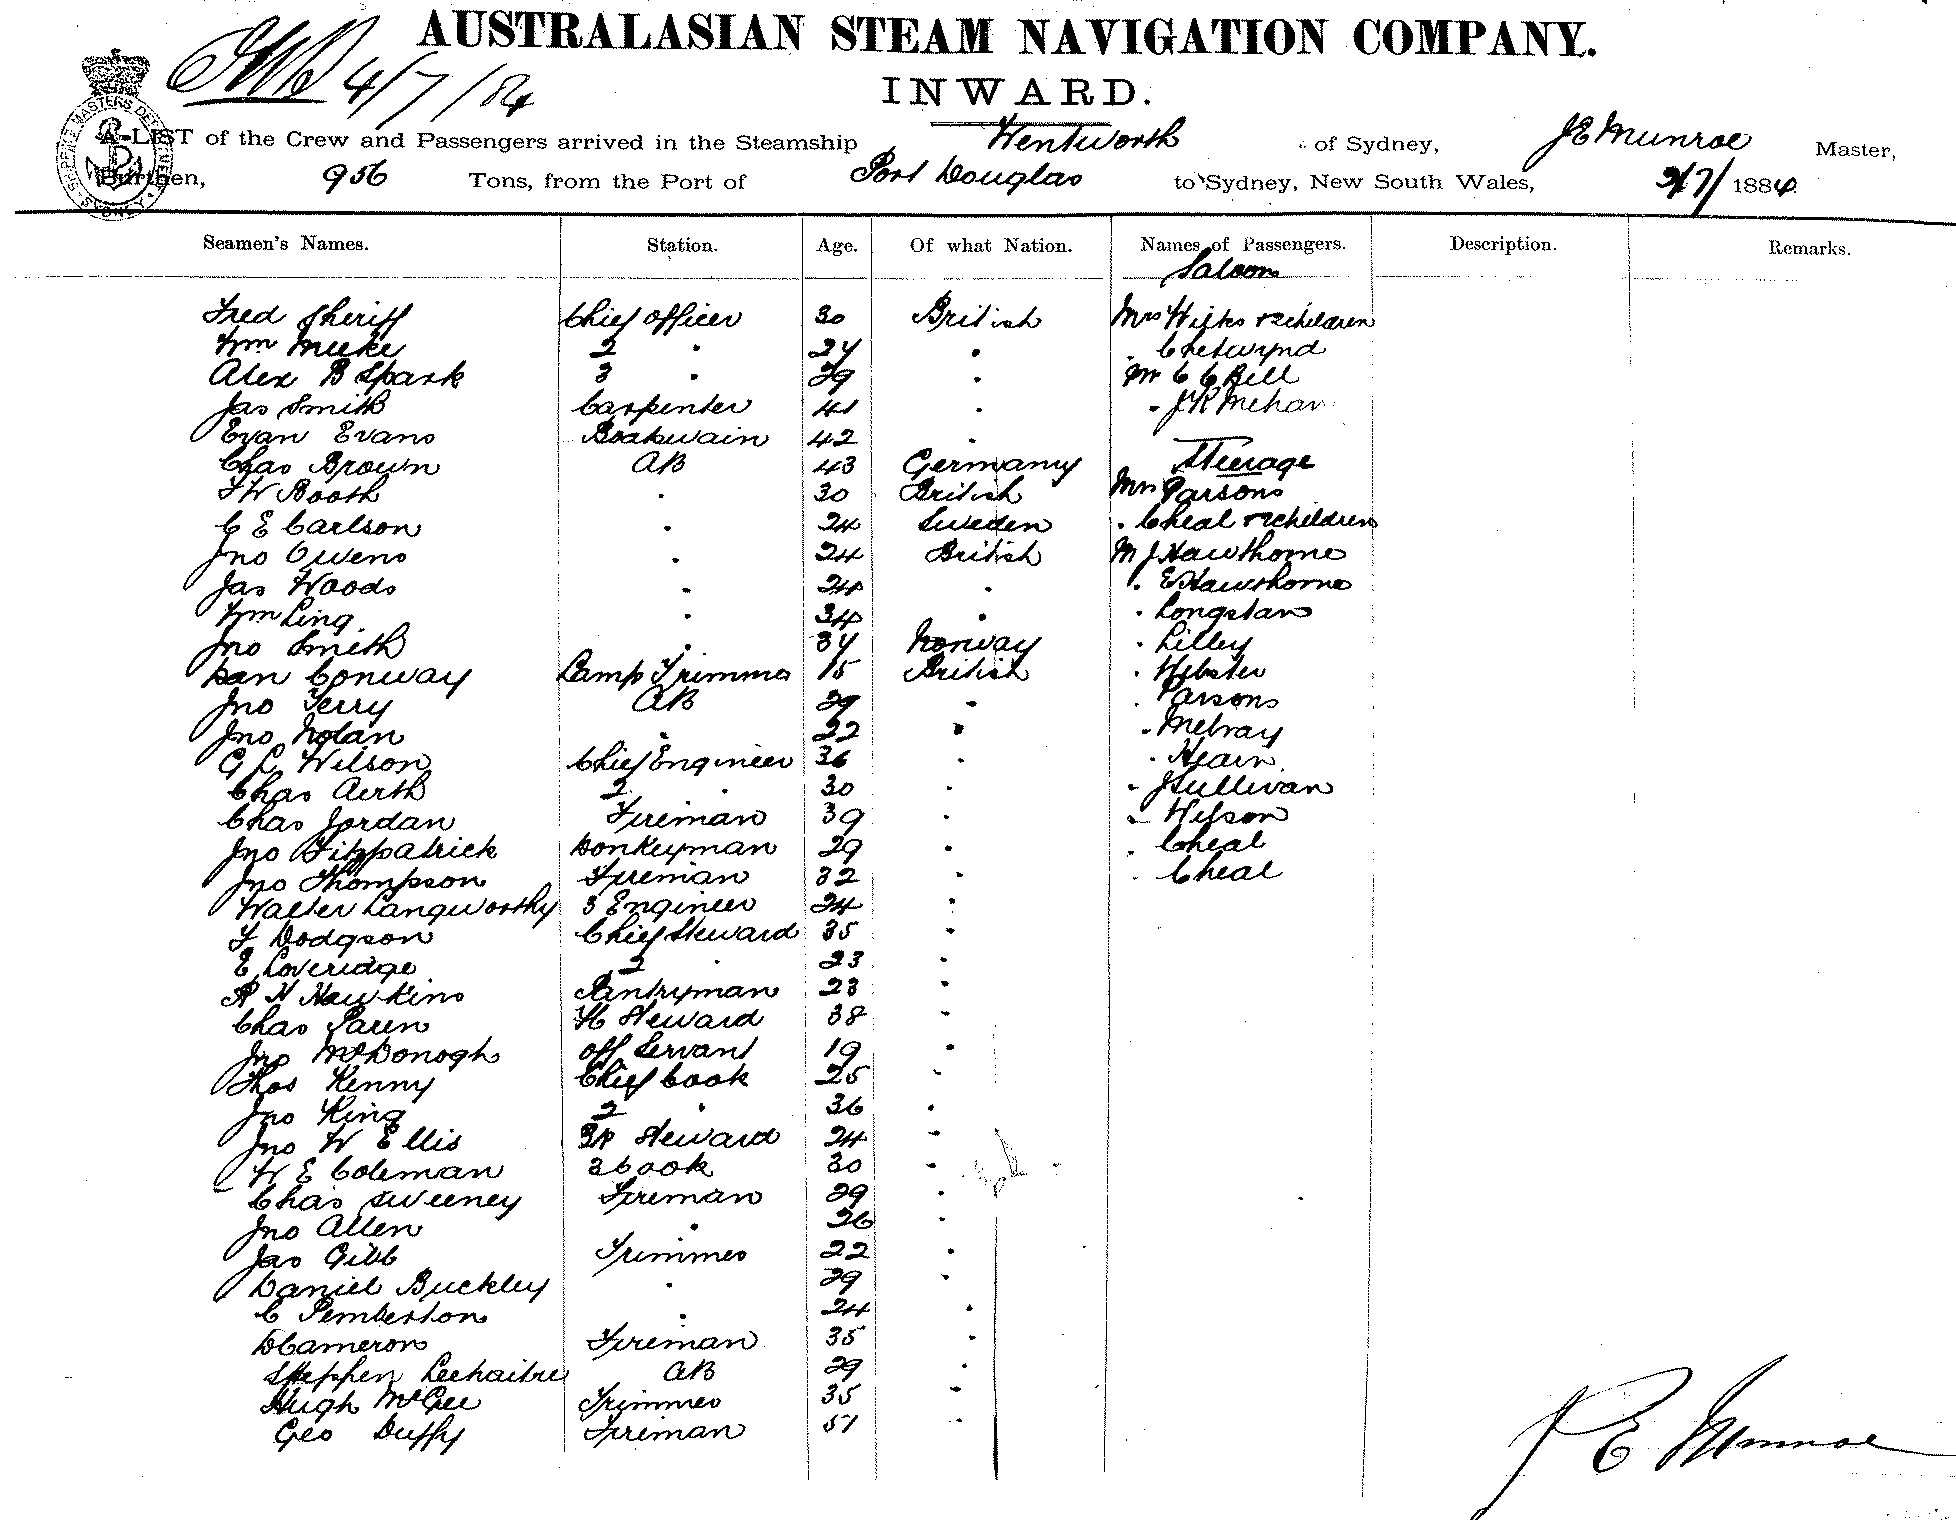 AUSTRALASIAN STEAM NAVIGATION COMPANY.
4/7/84
INWARD.
A LIST of the Crew and Passengers arrived in the Steamship Wentworth of Sydney, JE Munroe Master,
Burthen, 956 Tons, from the Port of Port Douglas to Sydney, New South Wales, 1884
Seamen's Names. Station. Age. Of what Nation. Names of Passengers. Description. Remarks.
Saloon
Fred Sheriff Chief Officer 30 British Mrs Wilks children
Wm Meeke 2 " " Chetwynd
Alex B Spark 3 " 29 " Mr C C Bell
Jas Smith Carpenter 41 " " J K Mehan
Evan Evans Boatswain 42 "
Chas Brown AB 43 Germany Steerage
F W Booth " 30 British Mrs Parsons
C E Carlson " 24 Sweden " Cheal children
Jno Owens " 24 British M J Hawthorne
Jas Woods " 24 " " E Hawthorne
Wm Ling " 34 " " Longstan
Jno Smith " Norway " Lilley
Dan Conway Lamp Trimmer 15 British " Webster
Jno Terry AB 29 " " Parsons
Jno Nolan " 22 " "
G L Wilson Chief Engineer 36 " "
Chas Aerth 2 " 30 " " J Sullivan
Chas Jordan Fireman 39 " " Wilson
Jno Fitzpatrick Donkeyman 29 " " Cheal
Jno Thompson Fireman 32 " " Cheal
Walter Langworthy 3 Engineer 24 "
F Dodgson Chief Steward 35 "
E Loveridge 2 " 23 "
R H Hawkins Pantryman 23 "
Chas Paren Steward 38 "
Jno McDonogh Off Servant 19 "
Thos Kenny Chief Cook 25 "
Jno King 2 " 36 "
Jno W Ellis Steward 24 "
W E Coleman 3 Cook 30 "
Chas Sweeney Fireman 29 "
Jno Allen " 26 "
Jas Gibb Trimmer 22 "
Daniel Buckley " 29 "
C Pemberton " 24 "
D Cameron Fireman 35 "
Stephen Lechaitre AB 29 "
Hugh McGee Trimmer 35 "
Geo Duffy Fireman 51 "
J E Munroe